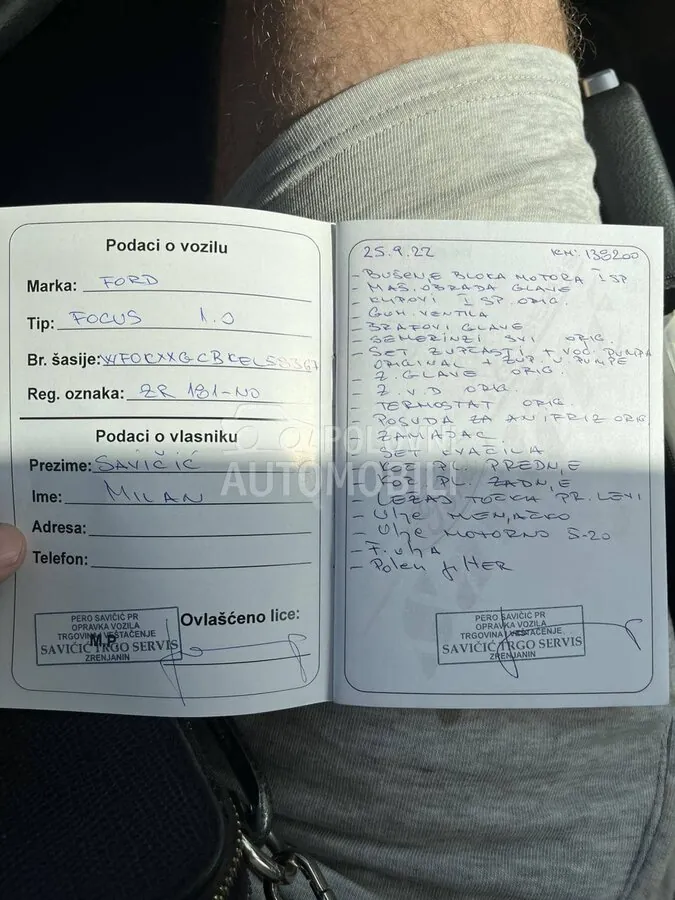 Podaci o vozilu
Marka: FORD
Tip: FOCUS 1.0
Br. šasije:
Reg. oznaka: ZR 181-NO
Podaci o vlasniku
Prezime: SAVIČIĆ
Ime: MILAN
Adresa:
Telefon:
Ovlašćeno lice:
M.P.
PERO SAVIČIĆ PR
OPRAVKA VOZILA
TRGOVINA I VEŠTAČENJE
SAVIČIĆ TRGO SERVIS
ZRENJANIN
25.9.22 KM: 138200
- BUŠENJE BLOKA MOTORA I SP
- MAŠ. OBRADA GLAVE
- KLIPOVI I SP. ORIG.
- GUM. VENTILA
- BRAFOVI GLAVE
- SEMERINZI SVI ORIG.
- SET ZUPČASTI + VOD. PUMPA
ORIGINAL + ZUP. U. PUMPE
- Z. GLAVE ORIG.
- Z. V. D ORIG.
- TERMOSTAT ORIG.
- POSUDA ZA ANTIFRIZ ORIG
- ZAMAJAC
- SET KVAČILA
- KOČ PL. PREDNJE
- KOČ PL. ZADNJE
- LEŽAJ TOČKA PR. LEVI
- Ulje MENJAČKO
- Ulje MOTORNO 5-20
- F. ulja
- Polen filTER
PERO SAVIČIĆ PR
OPRAVKA VOZILA
TRGOVINA I VEŠTAČENJE
SAVIČIĆ TRGO SERVIS
ZRENJANIN
POLOVNI
AUTOMOBILI